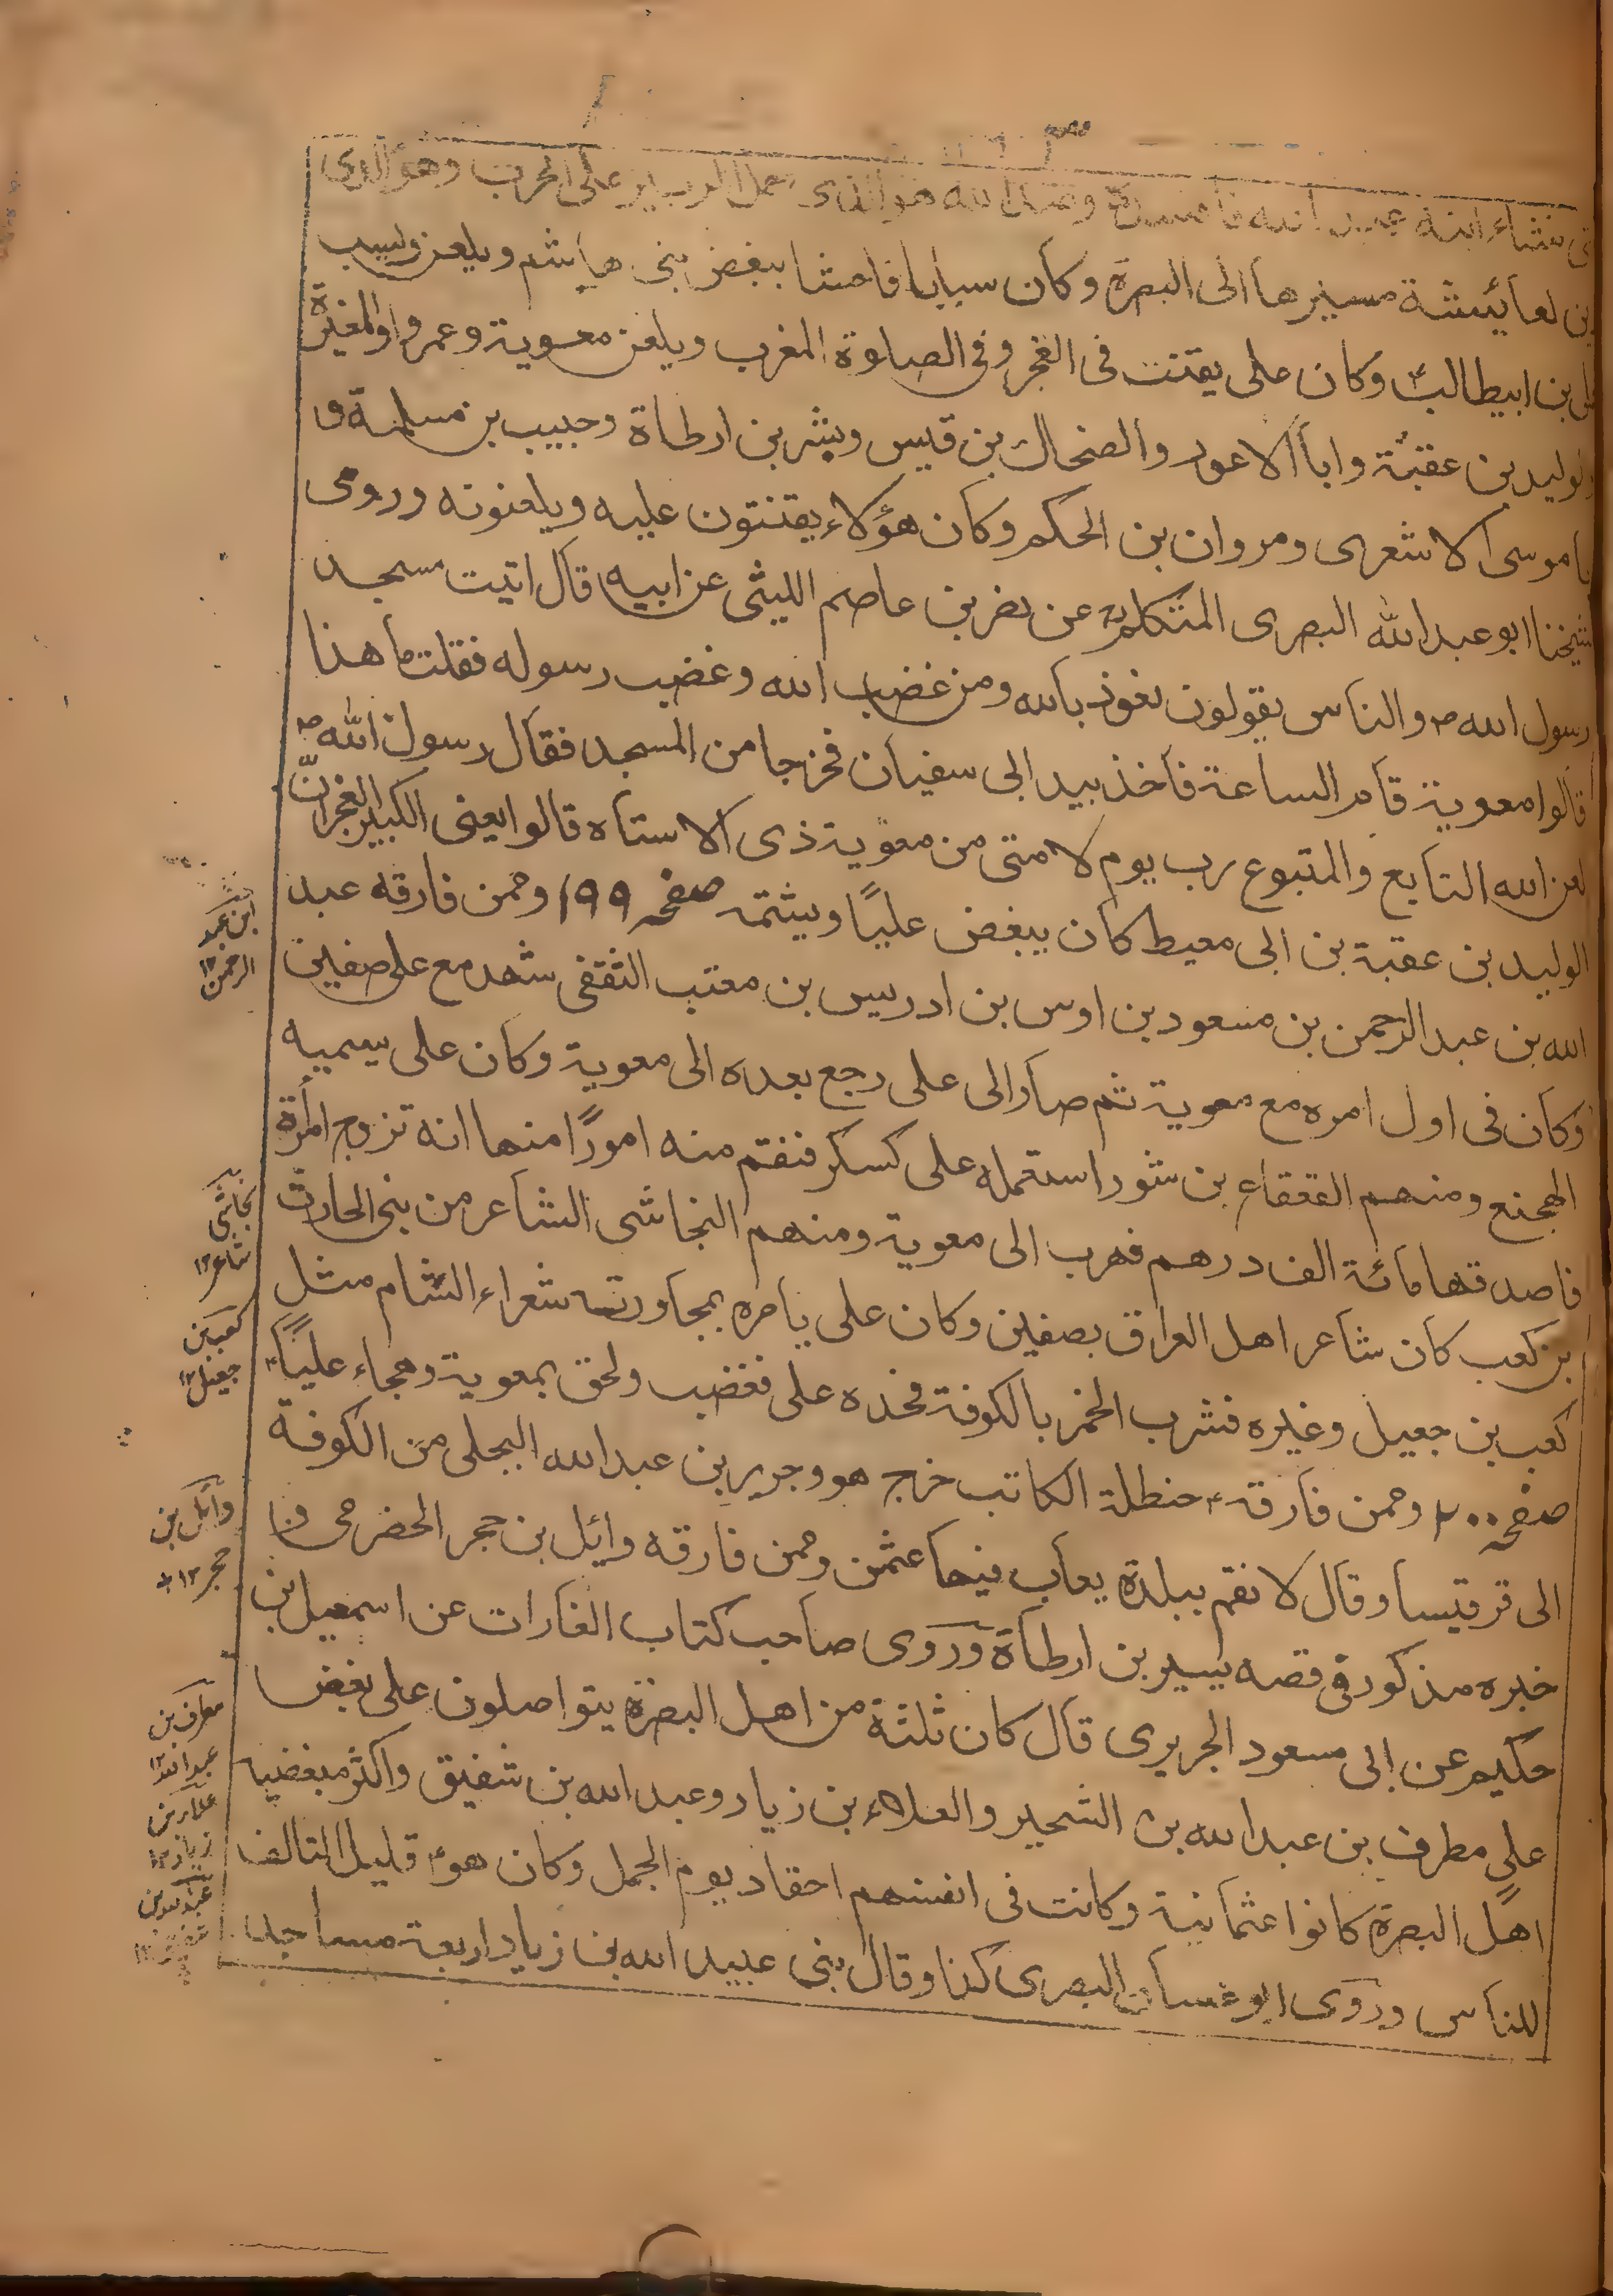 نشاء ابنه عبد الله فافسده وعبد الله هو الذى حمل الزبير على الحرب وهو الذى
زين لعائشة مسيرها الى البصرة وكان سبابا فاحشا يبغض بنى هاشم ويلعن ويسب
على بن ابيطالبؑ وكان على يقنت فى الفجر وفى الصلوة المغرب ويلعن معوية وعمروا والمغيرة
والوليد بن عقبة وابا الاعور والضحاك بن قيس وبشر بن ارطاة وحبيب بن مسلمة و
ابا موسى الاشعرى ومروان بن الحكم وكان هؤلاء يقنتون عليه ويلعنونه وروى
شيخنا ابو عبد الله البصرى المتكلم عن نضر بن عاصم الليثى عن ابيه قال اتيت مسجد
رسول اللهص والناس يقولون نعوذ بالله ومن غضب الله وغضب رسوله فقلت ما هذا
قالوا معوية قام الساعة فاخذ بيد ابى سفيان فخرجا من المسجد فقال رسول اللهص
لعن الله التابع والمتبوع رب يوم لامتى من معوية ذى الاستاه قالوا يعنى الكبير العجز انّ
الوليد بن عقبة بن ابى معيط كان يبغض عليًا ويشتمه صفحہ ١٩٩ وممن فارقه عبد
الله بن عبد الرحمن بن مسعود بن اوس بن ادريس بن معتب الثقفى شهد مع على صفين
وكان فى اول امره مع معوية ثم صار الى على رجع بعده الى معوية وكان على يسميه
الهجنع ومنهم القعقاع بن شور استعمله على كسكر فنقم منه امورًا منها انه تزوج امرأة
فاصدقها مائة الف درهم فهرب الى معوية ومنهم النجاشى الشاعر من بنى الحارث
بن كعب كان شاعر اهل العراق بصفين وكان على يامره بمجاورته شعراء الشام مثل
كعب بن جعيل وغيره فشرب الخمر بالكوفة فحده على فغضب ولحق بمعوية وهجاء عليًاؑ
صفحہ ٢٠٠ وممن فارقهؑ حنظلة الكاتب خرج هو وجرير بن عبد الله البجلى من الكوفة
الى قرقيسا وقال لا نقم ببلدة يعاب فيها عثمن وممن فارقه وائل بن حجر الحضرمى و
خبره مذكور فى قصه بسير بن ارطاة وروى صاحب كتاب الغارات عن اسمعيل بن
حكيم عن ابى مسعود الجريرى قال كان ثلثة من اهل البصرة يتواصلون على بغض
على مطرف بن عبد الله بن الشحير والعلاء بن زياد وعبد الله بن شفيق واكثر مبغضيه
اهل البصرة كانوا عثمانية وكانت فى انفسهم احقاد يوم الجمل وكان هوؑ قليل التالف
للناس وروى ابو غسان البصرى كذا وقال بنى عبيد الله بن زياد اربعة مساجد
ابن عبد
الرحمن١٢
نجاشى
شاعر١٢
كعب بن
جعيل١٢
وائل بن
حجر١٢
مطرف بن
عبد الله١٢
علاء بن
زياد١٢
عبد الله بن
شفيق١٢